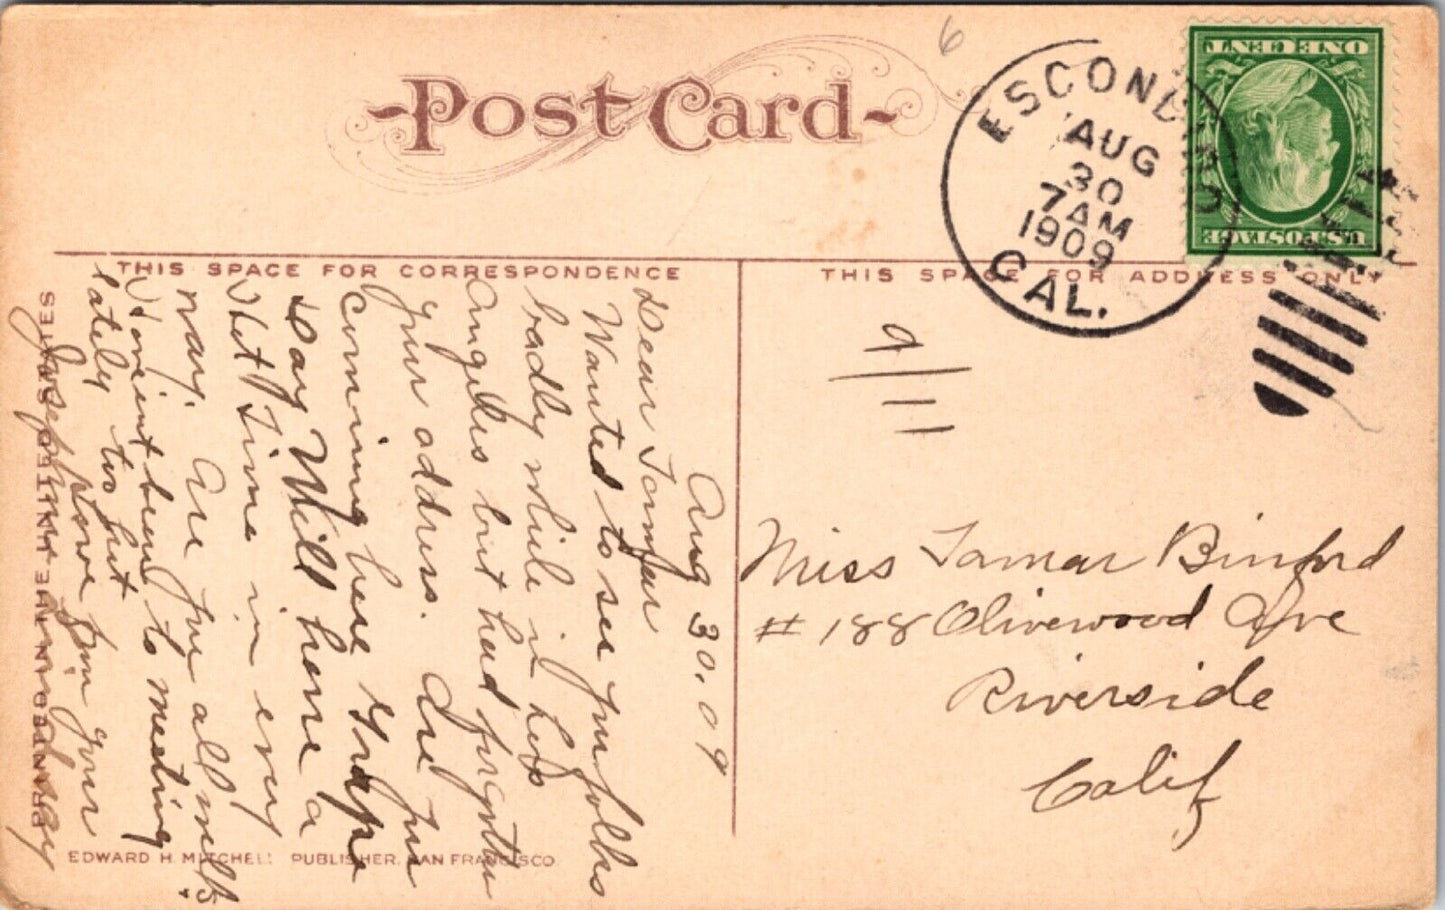 Post Card
6
ESCONDIDO
AUG
30
7 AM
1909
CAL.
ONE CENT
U.S. POSTAGE
THIS SPACE FOR CORRESPONDENCE
THIS SPACE FOR ADDRESS ONLY
9
11
Aug 30. 09
Dear Tamar
Wanted to see you folks
badly while in Los
Angeles but had forgotten
your address. Are you
comming here Grape
Day Will have a
Time in every
way. Are you all well?
Havent been to meeting
lately too hot
love from your
Josephine
Miss Tamar Binford
# 188 Olivewood Ave
Riverside
Calif
EDWARD H. MITCHELL PUBLISHER. SAN FRANCISCO